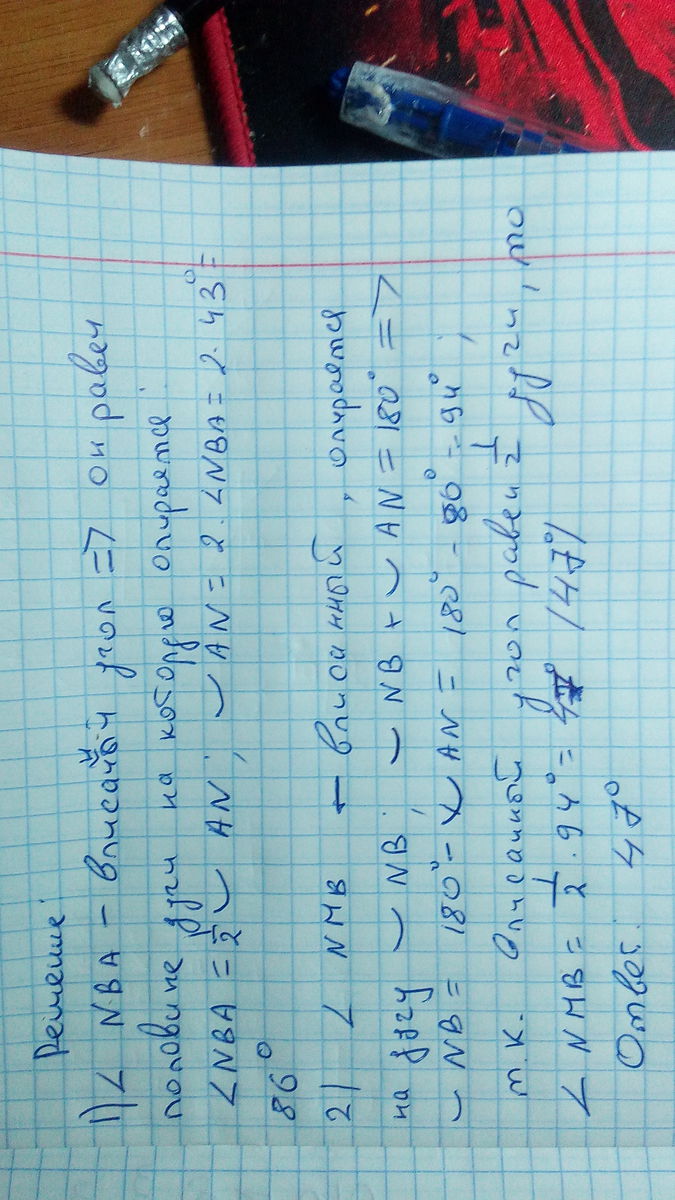 Решение:
1) ∠ NBA – вписаный угол => он равен
половине дуги на которую опирается:
∠NBA = 1/2 ◡ AN; ◡ AN = 2 · ∠NBA = 2 · 43° =
86°
2) ∠ NMB – вписанный, опирается
на дугу ◡ NB; ◡ NB + ◡ AN = 180° =>
◡ NB = 180° - ◡ AN = 180° - 86° = 94°;
т.к. Описанный угол равен 1/2 дуги, то
∠ NMB = 1/2 · 94° = 47° /47°/
Ответ: 47°